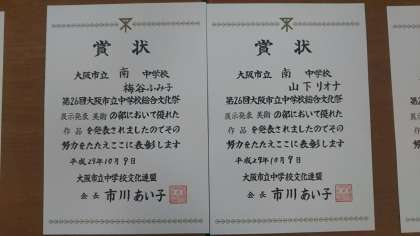 賞状
大阪市立 南 中学校
梅谷ふみ子
第26回大阪市立中学校総合文化祭
展示発表 美術 の部において優れた
作品 を発表されましたのでその
努力をたたえここに表彰します
平成29年10月9日
大阪市立中学校文化連盟
会長 市川あい子
賞状
大阪市立 南 中学校
山下リオナ
第26回大阪市立中学校総合文化祭
展示発表 美術 の部において優れた
作品 を発表されましたのでその
努力をたたえここに表彰します
平成29年10月9日
大阪市立中学校文化連盟
会長 市川あい子